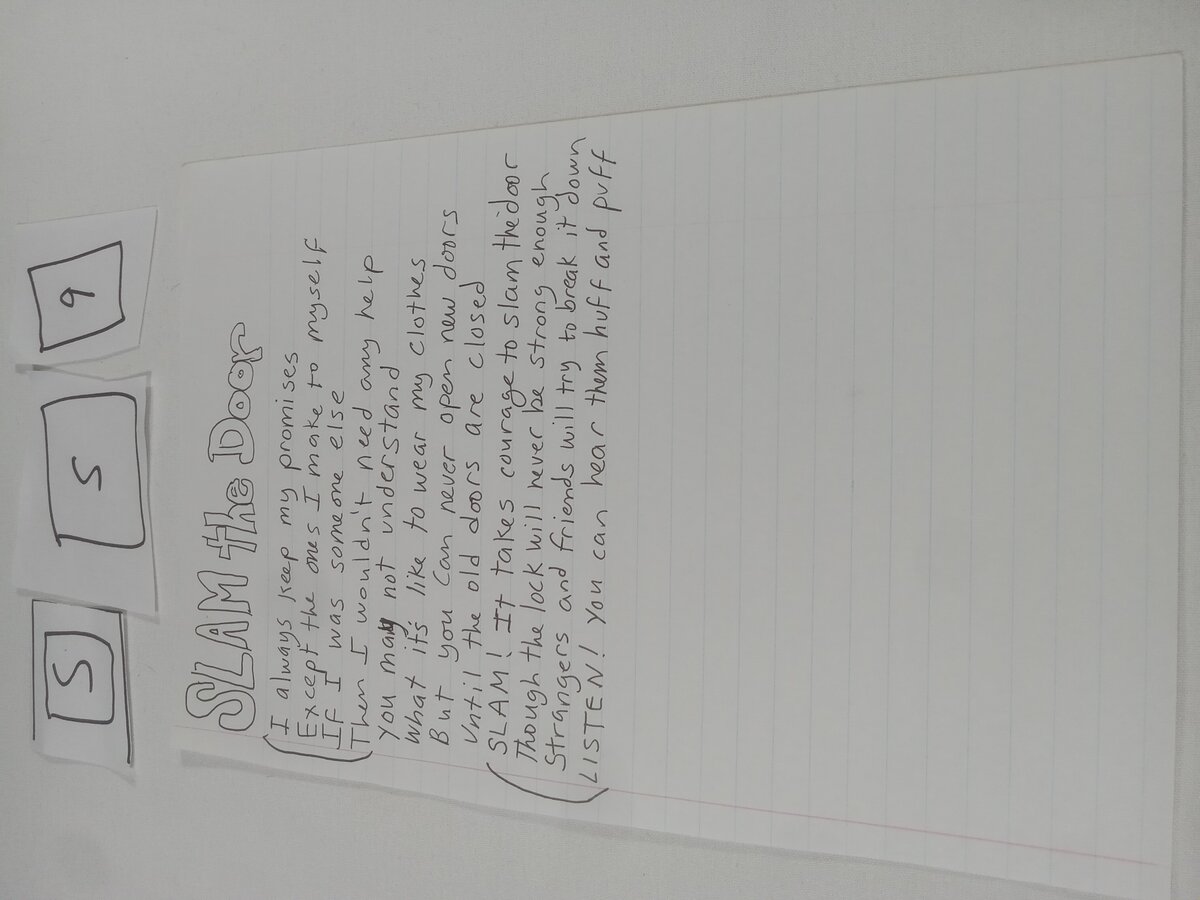 SLAM the Door
I always keep my promises
Except the ones I make to myself
If I was someone else
Then I wouldn't need any help
You may not understand
What it's like to wear my clothes
But you can never open new doors
Until the old doors are closed
SLAM! It takes courage to slam the door
Though the lock will never be strong enough
Strangers and friends will try to break it down
LISTEN! You can hear them huff and puff